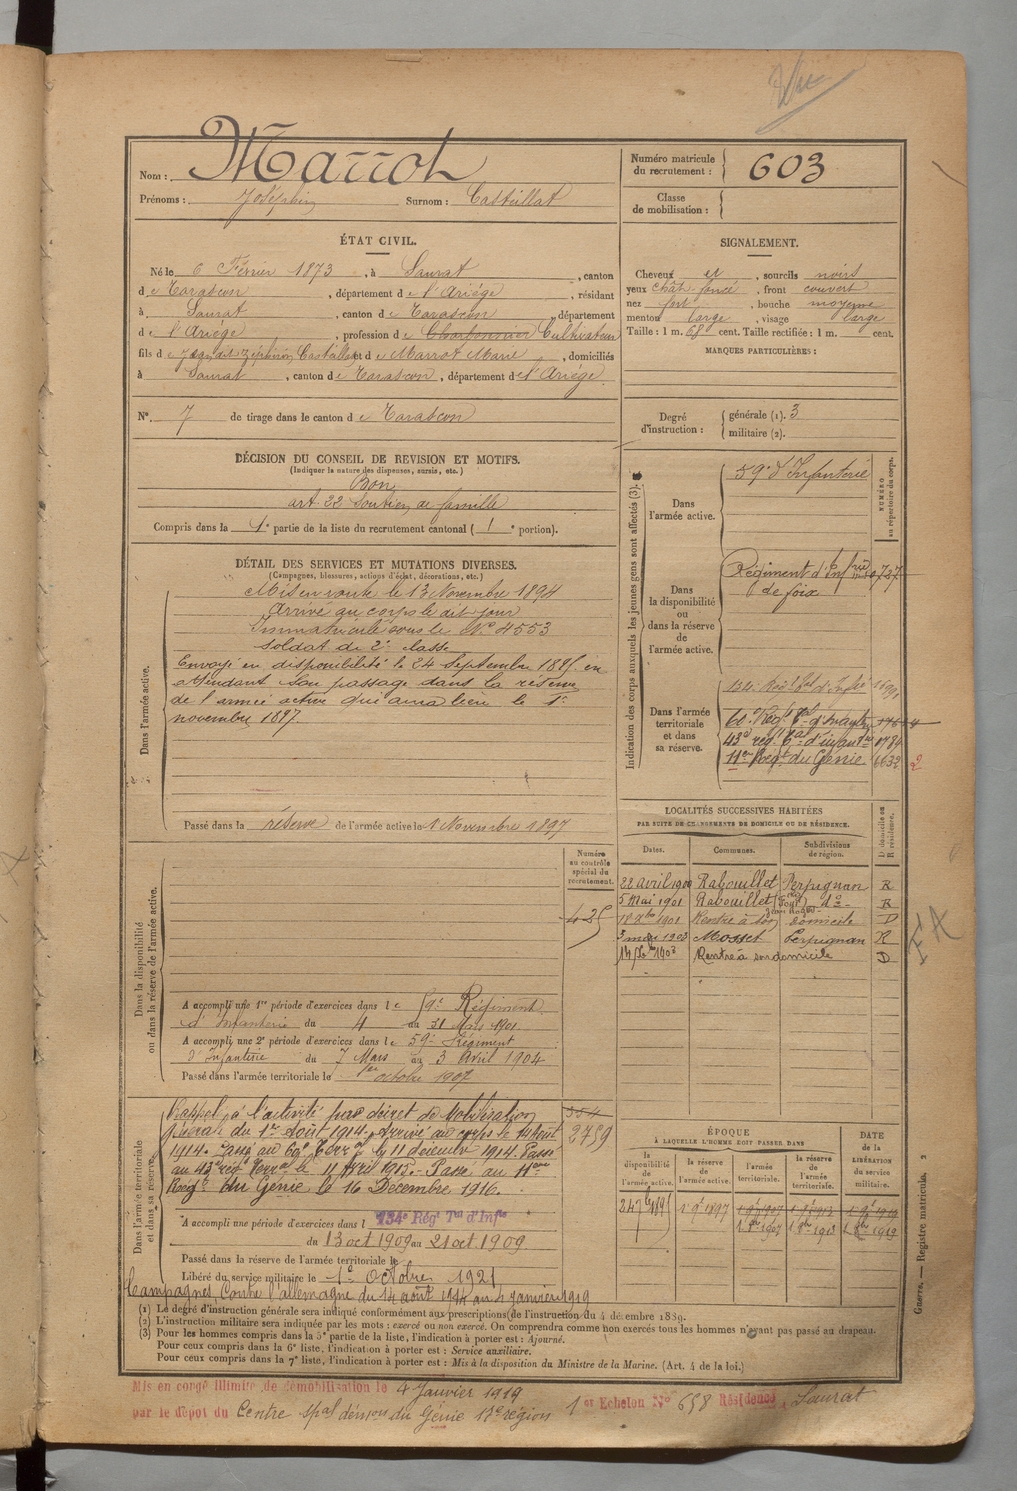 Vu
Nom : Marrot
Prénoms : Joséphin Surnom : Castaillat
Numéro matricule du recrutement : 603
Classe de mobilisation :
ÉTAT CIVIL.
Né le 6 Février 1873, à Saurat, canton
de Tarascon, département de l'Ariége, résidant
à Saurat, canton de Tarascon, département
de l'Ariége, profession de Charbonnier Cultivateur
fils de Jean dit Zéphirin Castaillat et de Marrot Marie, domiciliés
à Saurat, canton de Tarascon, département de l'Ariége
N° 7 de tirage dans le canton de Tarascon
SIGNALEMENT.
Cheveux et, sourcils noirs
yeux chât. foncé, front couvert
nez fort, bouche moyenne
menton large, visage large
Taille : 1 m. 68 cent. Taille rectifiée : 1 m. cent.
MARQUES PARTICULIÈRES :
Degré d'instruction : générale (1). 3
militaire (2).
DÉCISION DU CONSEIL DE REVISION ET MOTIFS.
(Indiquer la nature des dispenses, sursis, etc.)
Bon
art. 22 Soutien de famille
Compris dans la 1e partie de la liste du recrutement cantonal ( 1 e portion).
DÉTAIL DES SERVICES ET MUTATIONS DIVERSES.
(Campagnes, blessures, actions d'éclat, décorations, etc.)
Dans l'armée active.
Mis en route le 13 Novembre 1894
Arrivé au corps le dit jour
Immatriculé sous le N° 4553
soldat de 2e classe
Envoyé en disponibilité le 24 Septembre 1895 en
attendant son passage dans la réserve
de l'armée active qui aura lieu le 1er
novembre 1897.
Passé dans la réserve de l'armée active le 1 Novembre 1897
Indication des corps auxquels les jeunes gens sont affectés (3).
NUMÉRO au répertoire du corps.
Dans l'armée active.
59e d'Infanterie
Dans la disponibilité ou dans la réserve de l'armée active.
Régiment d'Infrie 0737
de foix
Dans l'armée territoriale et dans sa réserve.
134 Régt Tal d'Infie
60e Rég
43e rég Tal d'infant 0784
11e Régt du Génie 6632
2
LOCALITÉS SUCCESSIVES HABITÉES
PAR SUITE DE CHANGEMENTS DE DOMICILE OU DE RÉSIDENCE.
Dates. Communes. Subdivisions de région. D domicile ou R résidence.
22 avril 1900 Rabouillet Perpignan R
5 Mai 1901 Rabouillet do R
1901 Rentré à son domicile D
1903 Mosset Perpignan R
1903 Rentré à son domicile D
Dans la disponibilité ou dans la réserve de l'armée active.
Numéro au contrôle spécial du recrutement.
425
A accompli une 1re période d'exercices dans le 59e Régiment
d'Infanterie du 4 au 31 Mars 1901.
A accompli une 2e période d'exercices dans le 59e Régiment
d'Infanterie du 7 Mars au 3 Avril 1904
Passé dans l'armée territoriale le 1er octobre 1907
Dans l'armée territoriale et dans sa réserve.
Rappel à l'activité par décret de Mobilisation
général du 1er Août 1914. Arrivé au corps le 14 Août
1914. Passé au 60e Terral le 11 décembre 1914. Passé
au 43e rég Terral le 11 Avril 1915. Passé au 11eme
Régt du Génie le 16 Décembre 1916.
354
2759
A accompli une période d'exercices dans l 134e Régt Tal d'Infie
du 13 oct 1909 au 21 oct 1909
Passé dans la réserve de l'armée territoriale le
Libéré du service militaire le 1er Octobre 1921
Campagnes Contre l'allemagne du 14 août 1914 au 4 janvier 1919
ÉPOQUE
À LAQUELLE L'HOMME DOIT PASSER DANS
DATE DE LA LIBÉRATION du service militaire.
la disponibilité de l'armée active.
la réserve de l'armée active.
l'armée territoriale.
la réserve de l'armée territoriale.
24 7bre 1895 1er 9bre 1897 1er 9bre 1907 1er 9bre 1913 1er 9bre 1919
1er 8bre 1907 1er 8bre 1913 1er 8bre 1919
(1) Le degré d'instruction générale sera indiqué conformément aux prescriptions de l'instruction du 4 décembre 1889.
(2) L'instruction militaire sera indiquée par les mots : exercé ou non exercé. On comprendra comme non exercés tous les hommes n'ayant pas passé au drapeau.
(3) Pour les hommes compris dans la 5e partie de la liste, l'indication à porter est : Ajourné.
Pour ceux compris dans la 6e liste, l'indication à porter est : Service auxiliaire.
Pour ceux compris dans la 7e liste, l'indication à porter est : Mis à la disposition du Ministre de la Marine. (Art. 4 de la loi.)
Guerre. — Registre matricule. 2
Mis en congé illimité de démobilisation le 4 Janvier 1919
par le dépôt du Centre spal démon du Génie 17e région 1er Echelon N° 658 Résidence Saurat